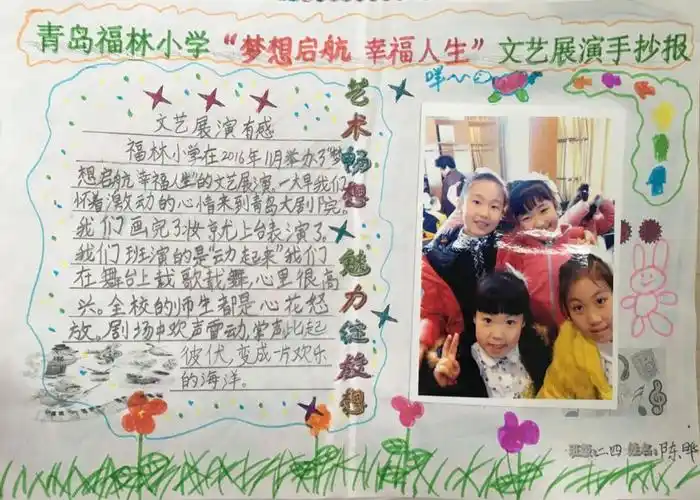 青岛福林小学“梦想启航 幸福人生”文艺展演手抄报
文艺展演有感
福林小学在2016年11月举办了“梦
想启航 幸福人生”的文艺展演。一大早我们
怀着激动的心情来到青岛大剧院。
我们画完了妆就上台表演了。
我们班演的是“动起来”我们
在舞台上载歌载舞,心里很高
兴。全校的师生都是心花怒
放。剧场中欢声雷动,掌声此起
彼伏,变成一片欢乐
的海洋。
艺术畅想 魅力绽放想
班级:二四 姓名:陈晔